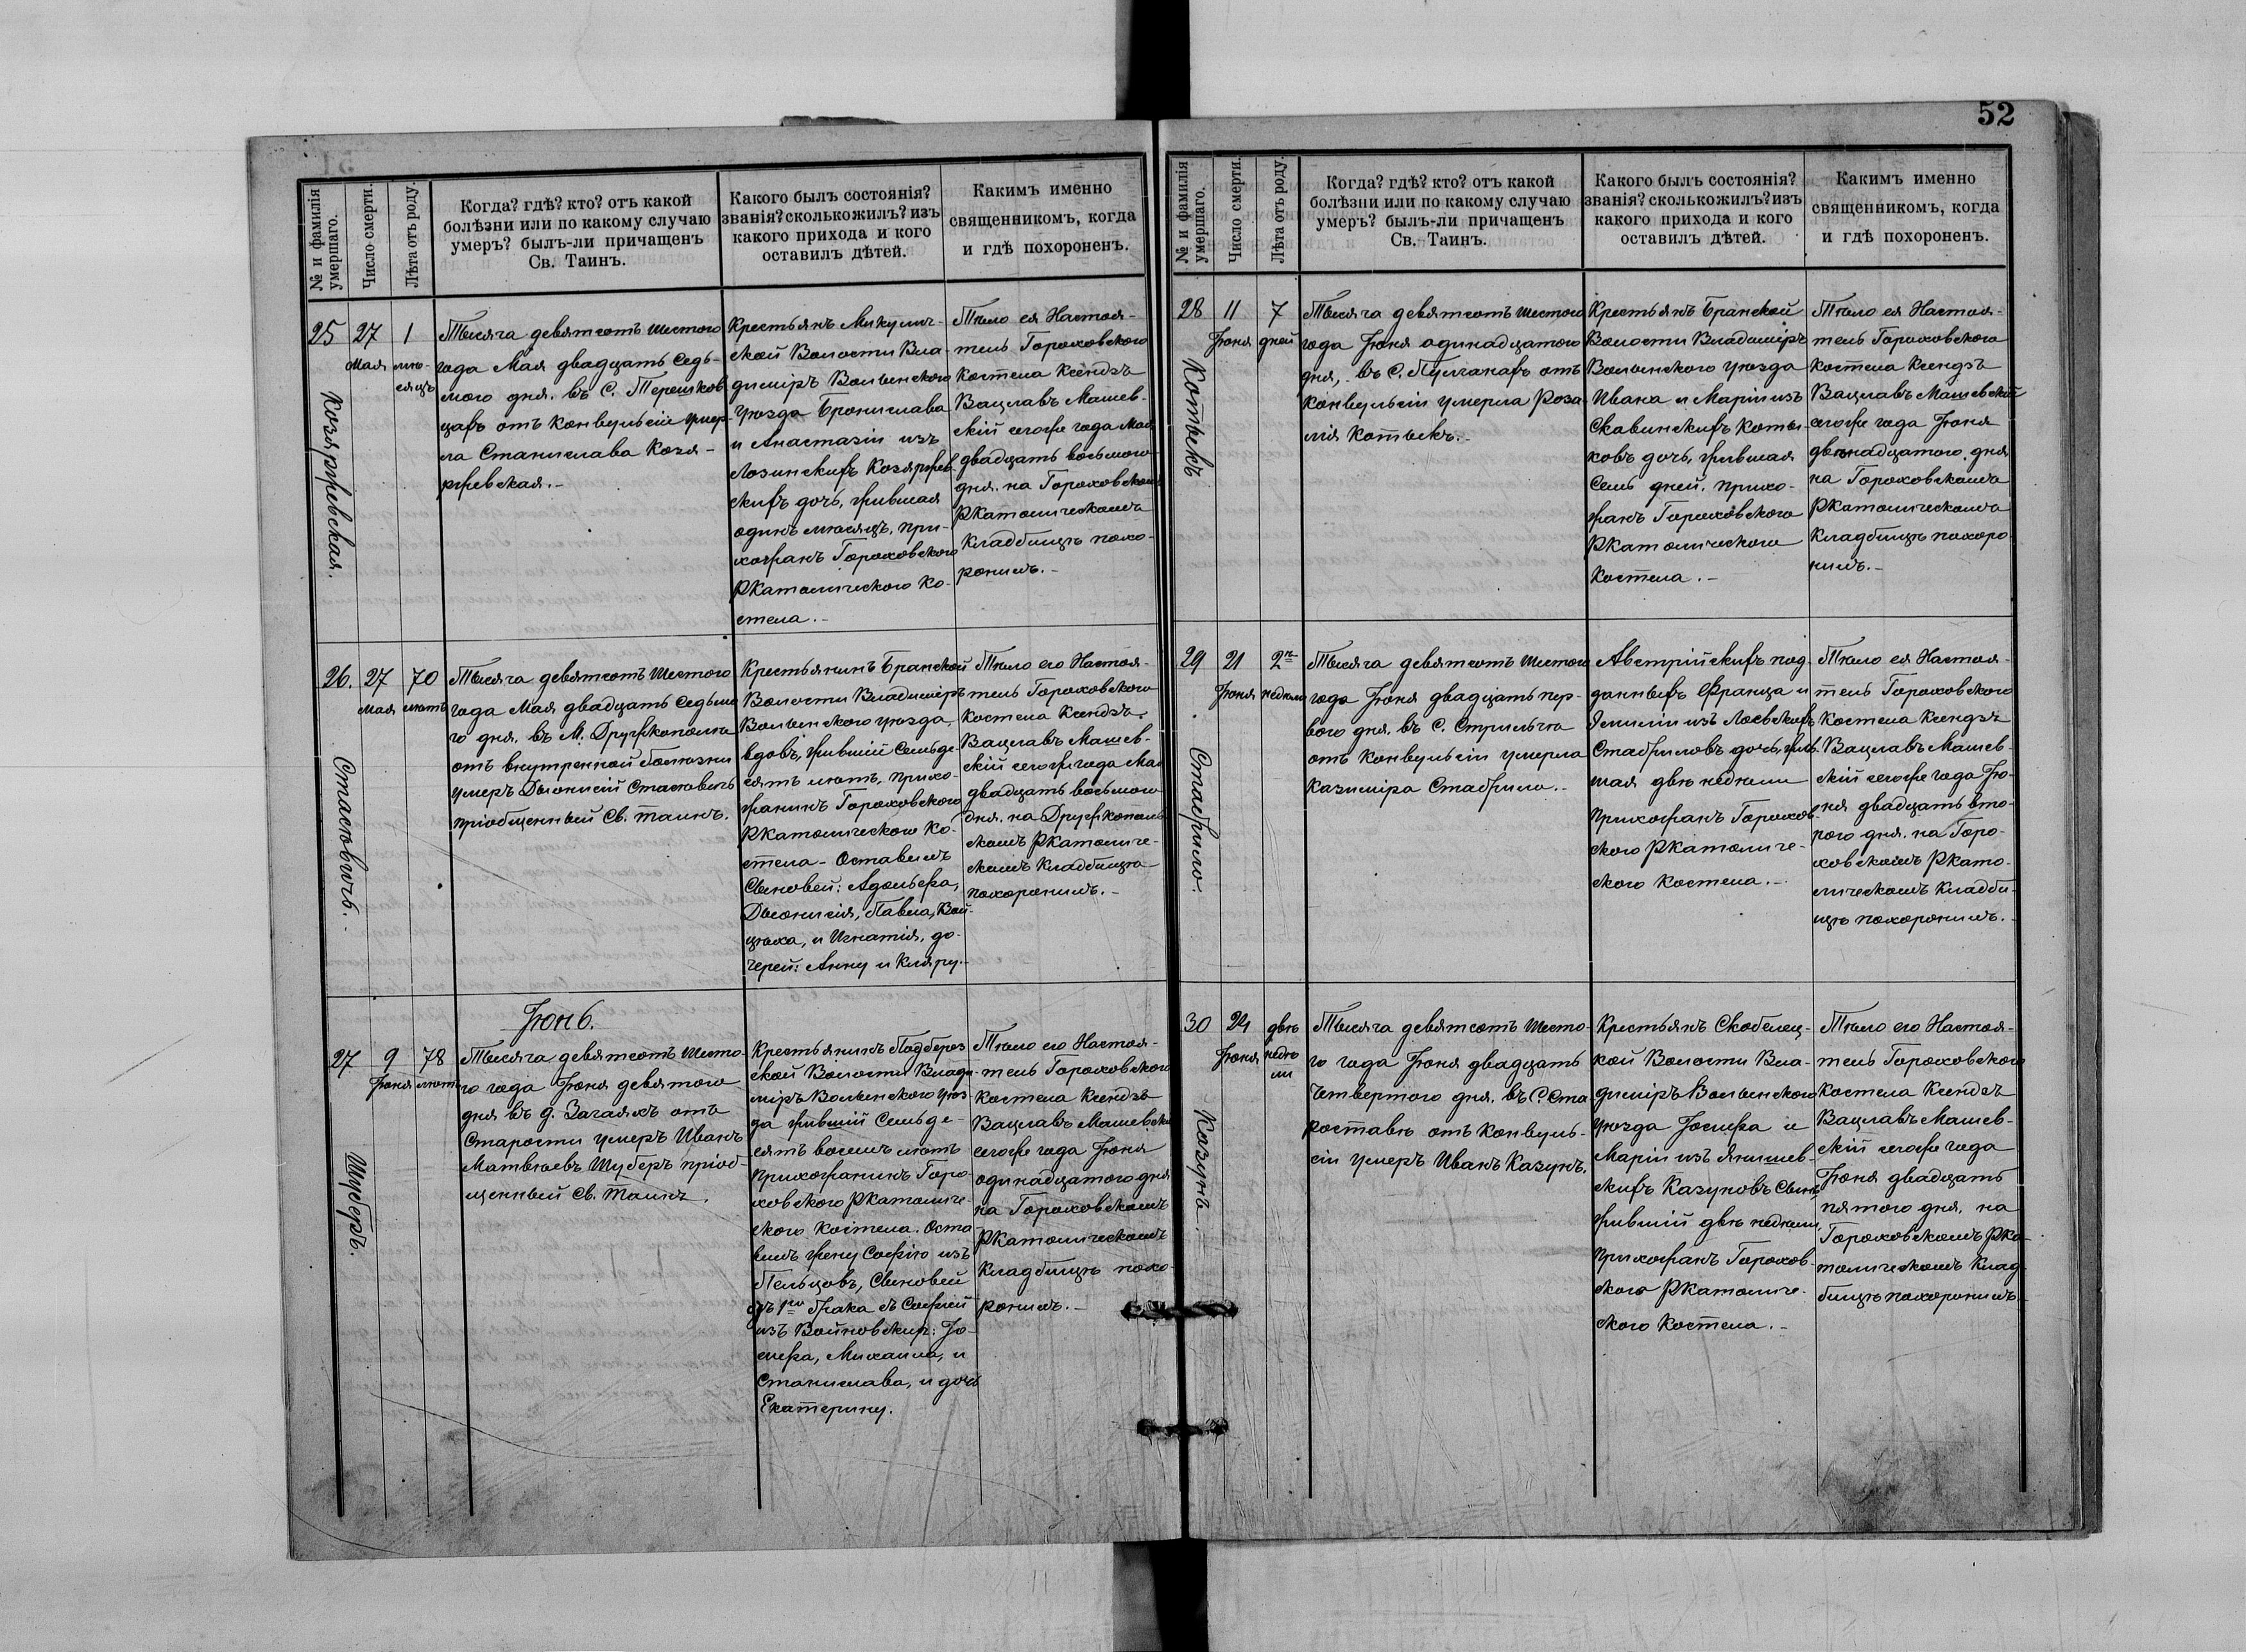 52
№ и фамилія умершаго.
Число смерти.
Лѣта отъ роду.
Когда? гдѣ? кто? отъ какой
болѣзни или по какому случаю
умеръ? былъ-ли причащенъ
Св. Таинъ.
Какого былъ состоянія?
званія? сколько жилъ? изъ
какого прихода и кого
оставилъ дѣтей.
Какимъ именно
священникомъ, когда
и гдѣ похороненъ.
25
Козяржевская.
27
Мая
1
мѣ-
сяцъ
Тысяча девятсотъ шестого
года Мая двадцать седь-
мого дня. въ С. Терешков
цахъ отъ конвульсіи умер-
ла Станислава Козя-
ржевская.-
Крестьянъ Микулич-
ской Волости Вла-
диміръ Волынского
уѣзда Бронислава
и Анастазіи изъ
Лозинскихъ Козяржев
скихъ дочь, жившая
одинъ мѣсяцъ, при-
хожанъ Гороховского
Ркатолического Ко-
стела.-
Тѣло ея Настоя-
тель Гороховского
Костела Ксендзъ
Вацлавъ Машев-
скій сегоже года Мая
двадцать восьмого
дня. на Гороховскомъ
Ркатолическомъ
Кладбищѣ похо-
ронилъ.-
26.
Стасювичъ.
27
Мая
70
лѣтъ
Тысяча девятсотъ Шестого
года Мая двадцать седьмо
го дня. въ М. Дружкополѣ
отъ внутренной болѣзни
умеръ Дыонисій Стасювичъ
пріобщенный Св. таинъ.
Крестьянинъ Бранской
Волости Владиміръ
Волынского уѣзда,
вдовъ, жившій семьде-
сятъ лѣтъ, прихо-
жанинъ Гороховского
Ркатолического Ко-
стела - Оставилъ
Сыновей: Адольфа,
Дыонисія, Павла, Вой-
цѣха, и Игнатія, до-
черей: Анну и Кляру.-
Тѣло его Настоя-
тель Гороховского
Костела Ксендзъ
Вацлавъ Машев-
скій сегоже года Мая
двадцать восьмого
дня. на Дружкополь
скомъ Ркатоличе-
скомъ Кладбищѣ
похоронилъ.-
Іюнь.
27
Шуберъ.
9
Іюня
78
лѣтъ
Тысяча девятсотъ Шесто-
го года Іюня девятого
дня въ д. Загаяхъ отъ
Старости умеръ Иванъ
Матвѣевъ Шуберъ пріоб
щенный Св. Таинъ.
Крестьянинъ Подберез
ской Волости Влади-
міръ Волынского уѣз
да жившій Семьде-
сятъ восемь лѣтъ
Прихожанинъ Горо
ховского Ркатоличе
ского Костела. Оста
вилъ жену Софію изъ
Пельцовъ, Сыновей
отъ 1го брака съ Софіей
изъ Войновскихъ: Іо-
сифа, Михаила, и
Станислава, и дочь
Екатерину.
Тѣло его Настоя-
тель Гороховского
Костела Ксендзъ
Вацлавъ Машевскій
сегоже года Іюня
одинадцатого дня
на Гороховскомъ
Ркатолическомъ
Кладбищѣ похо-
ронилъ.-
№ и фамилія умершаго.
Число смерти.
Лѣта отъ роду.
Когда? гдѣ? кто? отъ какой
болѣзни или по какому случаю
умеръ? былъ-ли причащенъ
Св. Таинъ.
Какого былъ состоянія?
званія? сколько жилъ? изъ
какого прихода и кого
оставилъ дѣтей.
Какимъ именно
священникомъ, когда
и гдѣ похороненъ.
28
Котыкъ
11
Іюня
7
дней
Тысяча девятсотъ шестого
года Іюня одинадцатого
дня, въ С. отъ
Конвульсіи умерла Роза-
лія Котыкъ.-
Крестьянъ Бранской
Волости Владиміръ
Волынского уѣзда
Ивана и Маріи изъ
Скавинскихъ Коты-
ковъ дочь, жившая
Семь дней. прихо-
жанъ Гороховского
Ркатолического
Костела.-
Тѣло ея Настоя-
тель Гороховского
Костела Ксендзъ
Вацлавъ Машевскій
сегоже года Іюня
двѣнадцатого дня
на Гороховскомъ
Ркатолическомъ
Кладбищѣ похоро
нилъ.-
29
Стабрило.
21
Іюня
2ѣ
недѣли
Тысяча девятсотъ Шестого
года Іюня двадцать пер-
вого дня. въ С. Стрильча
отъ конвульсіи умерла
Казиміра Стабрило.-
Австрійскихъ под
данныхъ Франца и
Эмиліи изъ Лаевскихъ
Стабриловъ дочь, жив-
шая двѣ недѣли
Прихожанъ Горохов-
ского Ркатоличе-
ского Костела.-
Тѣло ея Настоя-
тель Гороховского
Костела Ксендзъ
Вацлавъ Машев-
скій сегоже года Ію-
ня двадцать вто-
рого дня. на Горо-
ховскомъ Ркато-
лическомъ Кладби-
щѣ похоронилъ.-
30
Казунъ.
24
Іюня
двѣ
недѣ
ли
Тысяча девятсотъ Шесто-
го года Іюня двадцать
Четвертого дня. въ С. Ста
роставѣ отъ Конвуль-
сіи умеръ Иванъ Казунъ.
Крестьянъ Скобелец-
кой Волости Вла-
диміръ Волынского
уѣзда Іосифа и
Маріи изъ Янишев-
скихъ Казуновъ Сынъ,
жившій двѣ недѣли,
Прихожанъ Горохов-
ского Ркатоличе-
ского Костела.-
Тѣло его Настоя-
тель Гороховского
Костела Ксендзъ
Вацлавъ Машев-
скій сегоже года
Іюня двадцать
пятого дня. на
Гороховскомъ Рка-
толическомъ Клад-
бищѣ похоронилъ.-